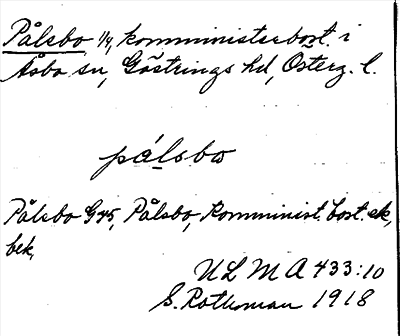 Pålsbo 1/4, komministerbost. i
Åsbo sn, Göstrings hd, Österg. l.
pålsbo
Pålsbo G45, Pålsbo, Komminist. bost. ek,
bek,
ULMA 433:10
S. Rothman 1918